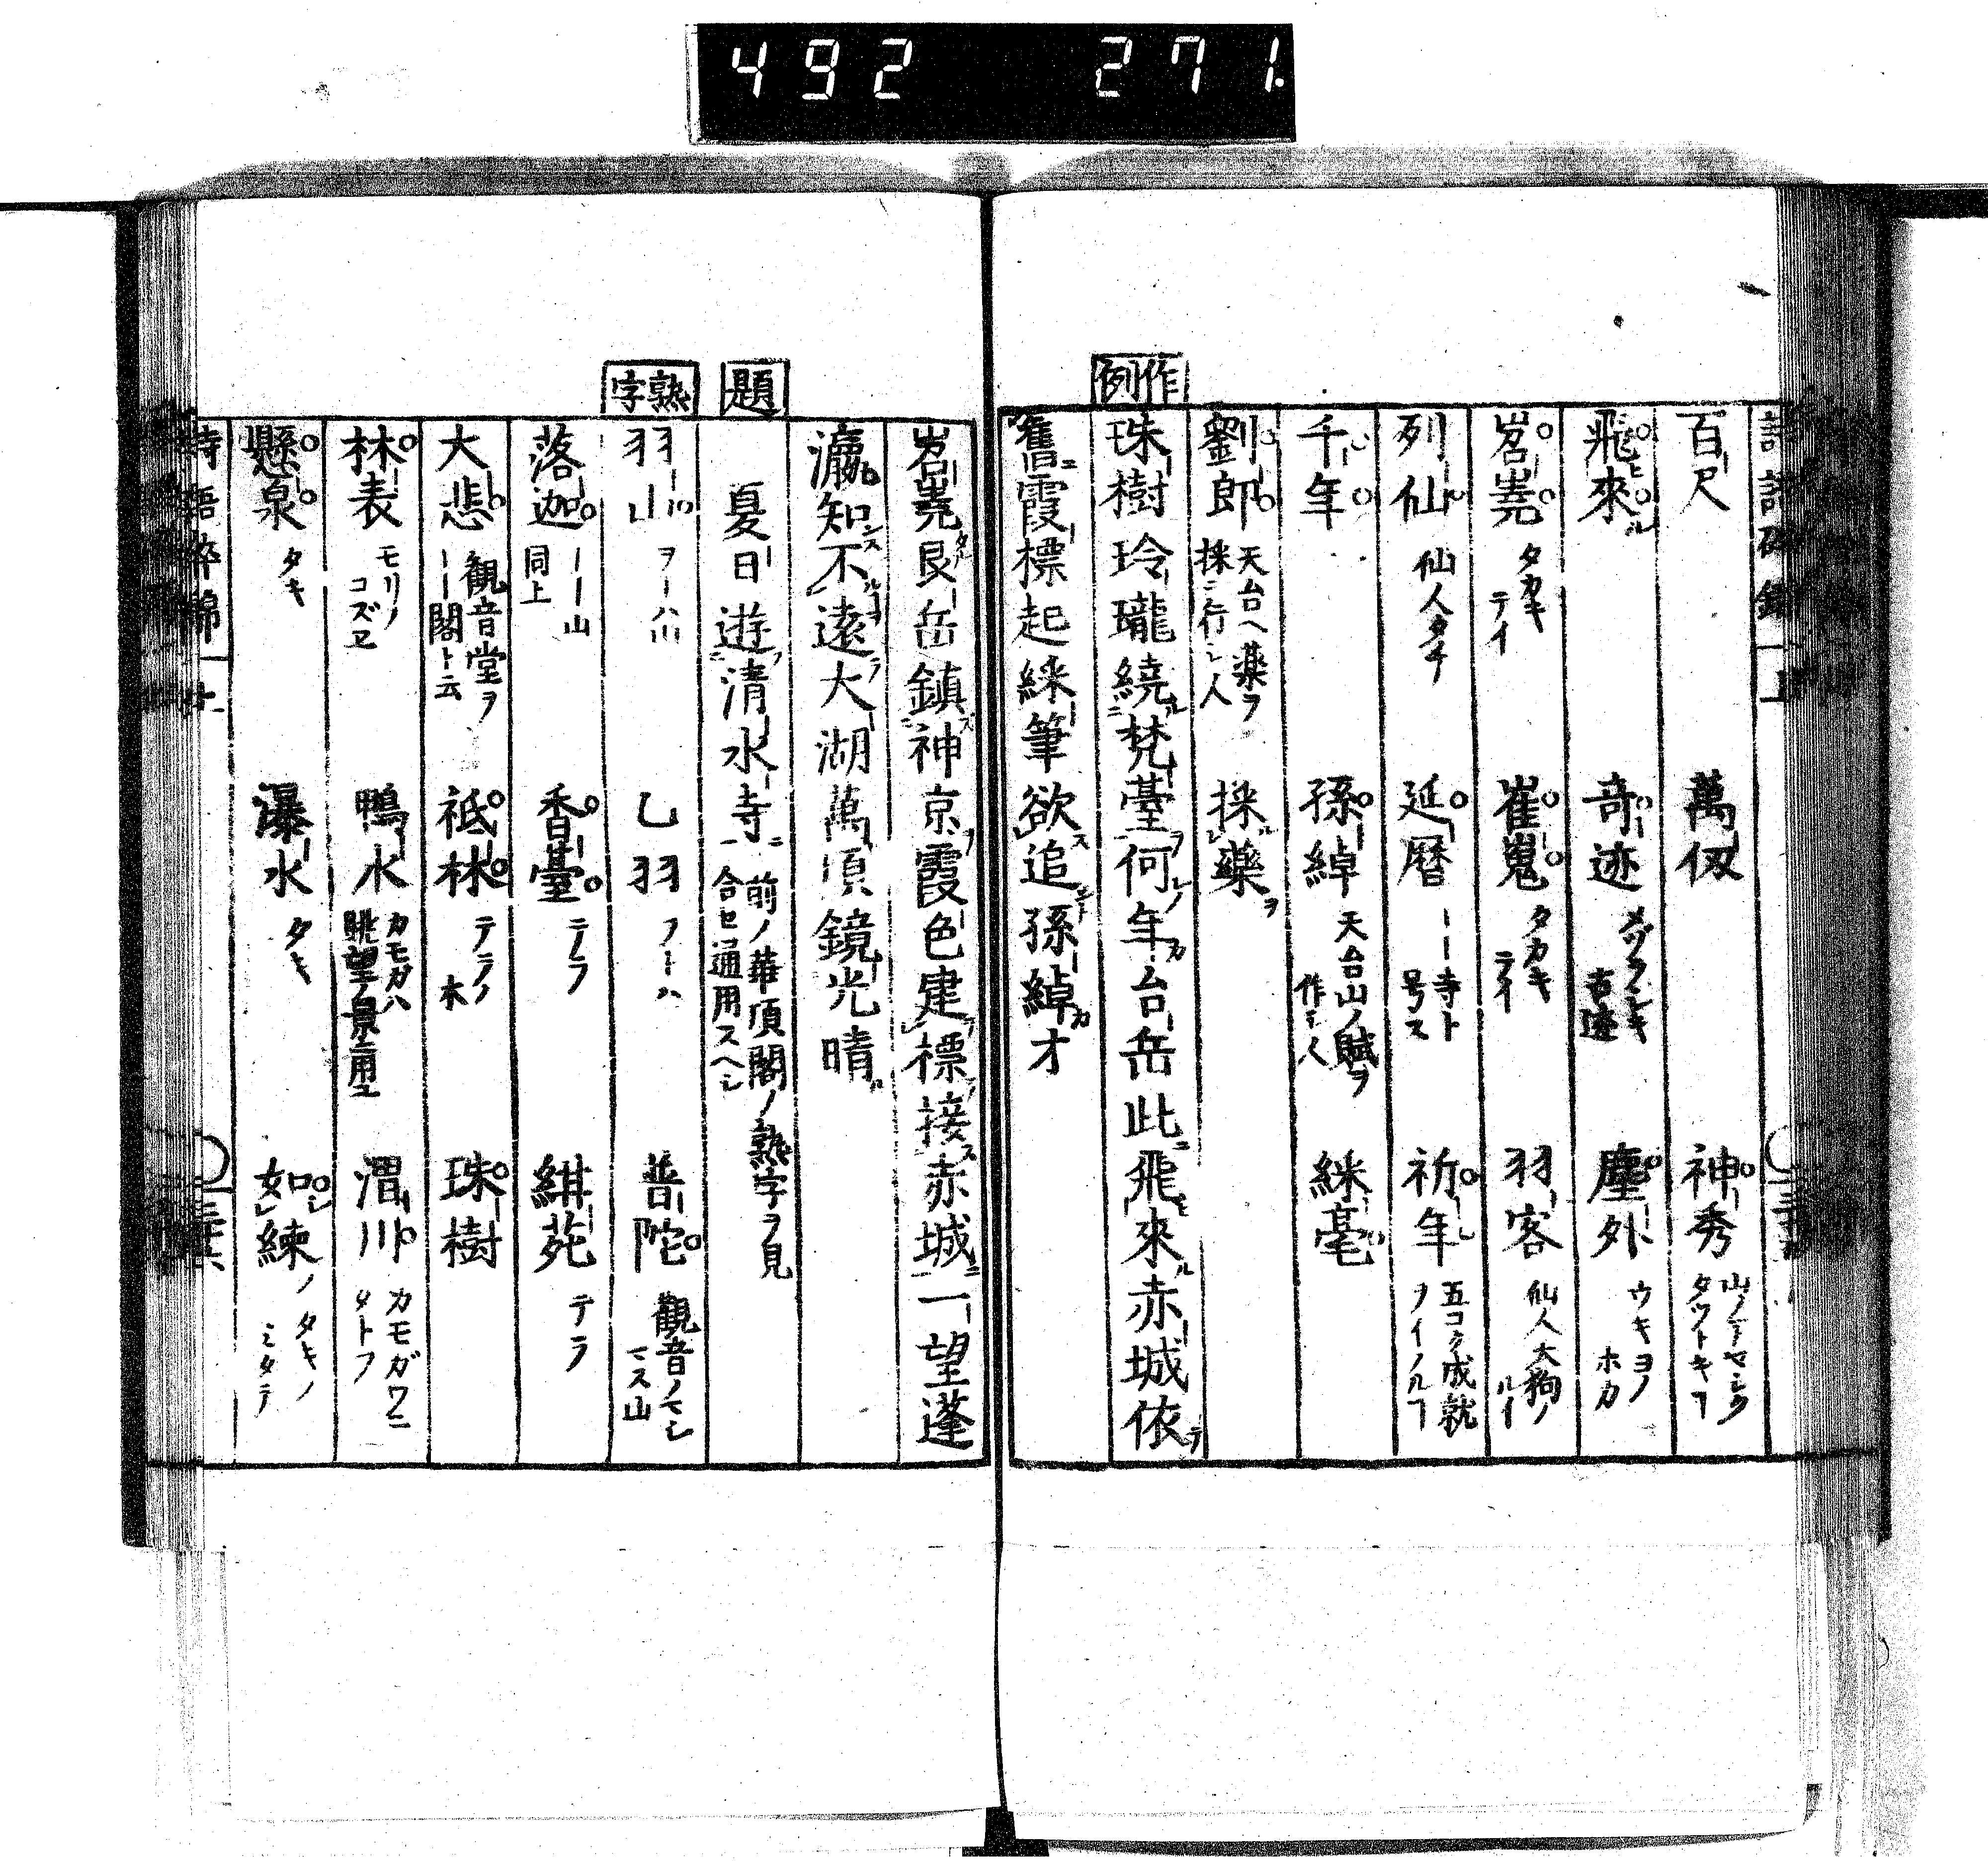 492 271.
百尺 萬仭 神秀
飛來 奇迹 古迹 塵外 ウキヨノホカ
岧嶤 タカキテイ 崔嵬 タカキテイ 羽客 仙人大狗ノルイ
列仙 仙人タチ 延暦 ーー寺ト号ス 祈年 五コク成就ヲイノルヿ
千年 孫綽 天台山ノ賦ヲ作シ人 綵毫
劉郎 天台ヘ薬ヲ採ニ行シ人 採藥
作例
珠樹玲瓏繞梵臺何年台岳此飛來赤城依
舊霞標起綵筆欲追孫綽才
岧嶤艮岳鎮神京霞色建標接赤城一望蓬
瀛知不遠大湖萬頃鏡光晴
題
夏日遊清水寺 前ノ華頂閣ノ熟字ヲ見合セ通用スヘシ
熟字
羽山 乙羽 普陀 觀音ノマシマス山
落迦 ーー山同上 香臺 テラ 紺苑 テラ
大悲 観音堂ヲーー閣ト云 祗林 テラノ木 珠樹
林表 モリノコズヱ 鴨水 カモガハ眺望ノ景ニ用ユ 渭川 カモガワニタトフ
懸泉 タキ 瀑水 タキ 如練 タキノミタテ